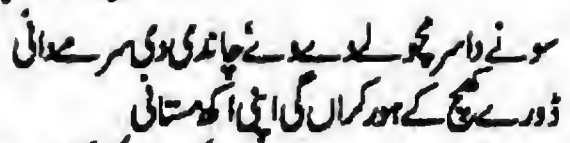 سونے دا سرمچو لے دے وے چاندی دی سرمے دانی
ڈورے کھچ کے ہور کراں گی اپنی اکھ مستانی